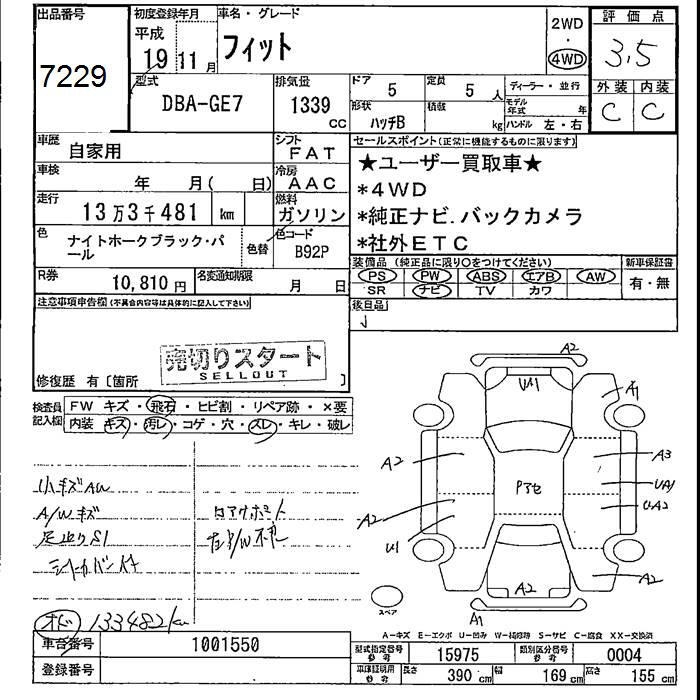 出品番号 7229
初度登録年月 平成 19 11月
車名・グレード フィット
2WD ・ 4WD
評価点 3.5
外装 内装
C C
型式 DBA-GE7
排気量 1339 CC
ドア 5
定員 5人
ディーラー・並行
形状 ハッチB
積載 kg
モデル年式 年
ハンドル 左・右
車歴 自家用
シフト FAT
車検 年 月( 日)
冷房 AAC
走行 13万3千481 km
燃料 ガソリン
色 ナイトホークブラック・パール
色替
色コード B92P
R券 10,810円
名変通知期限 月 日
セールスポイント(正常に機能するものに限ります)
★ユーザー買取車★
*4WD
*純正ナビ.バックカメラ
*社外ETC
装備品(純正品に限り○をつけてください)
PS PW ABS エアB AW
SR ナビ TV カワ
新車保証書
有・無
後日品
注意事項申告欄(不具合内容等は具体的に記入して下さい)
売切りスタート
SELLOUT
修復歴 有〔箇所 〕
検査員記入欄
FW キズ・飛石・ヒビ割・リペア跡・×要
内装 キズ・汚レ・コゲ・穴・スレ・キレ・破レ
小キズAW
A/Wキズ
オド 133482km
A2
UA1
A1
A2
A3
UA1
UA2
A2
U1
A2
A2
A1
スペア
A-キズ E-エクボ U-凹み W-補修跡 S-サビ C-腐食 XX-交換済
車台番号 1001550
登録番号
型式指定番号 参考 15975
類別区分番号 参考 0004
車庫証明用 参考 長さ 390cm 幅 169cm 高さ 155cm